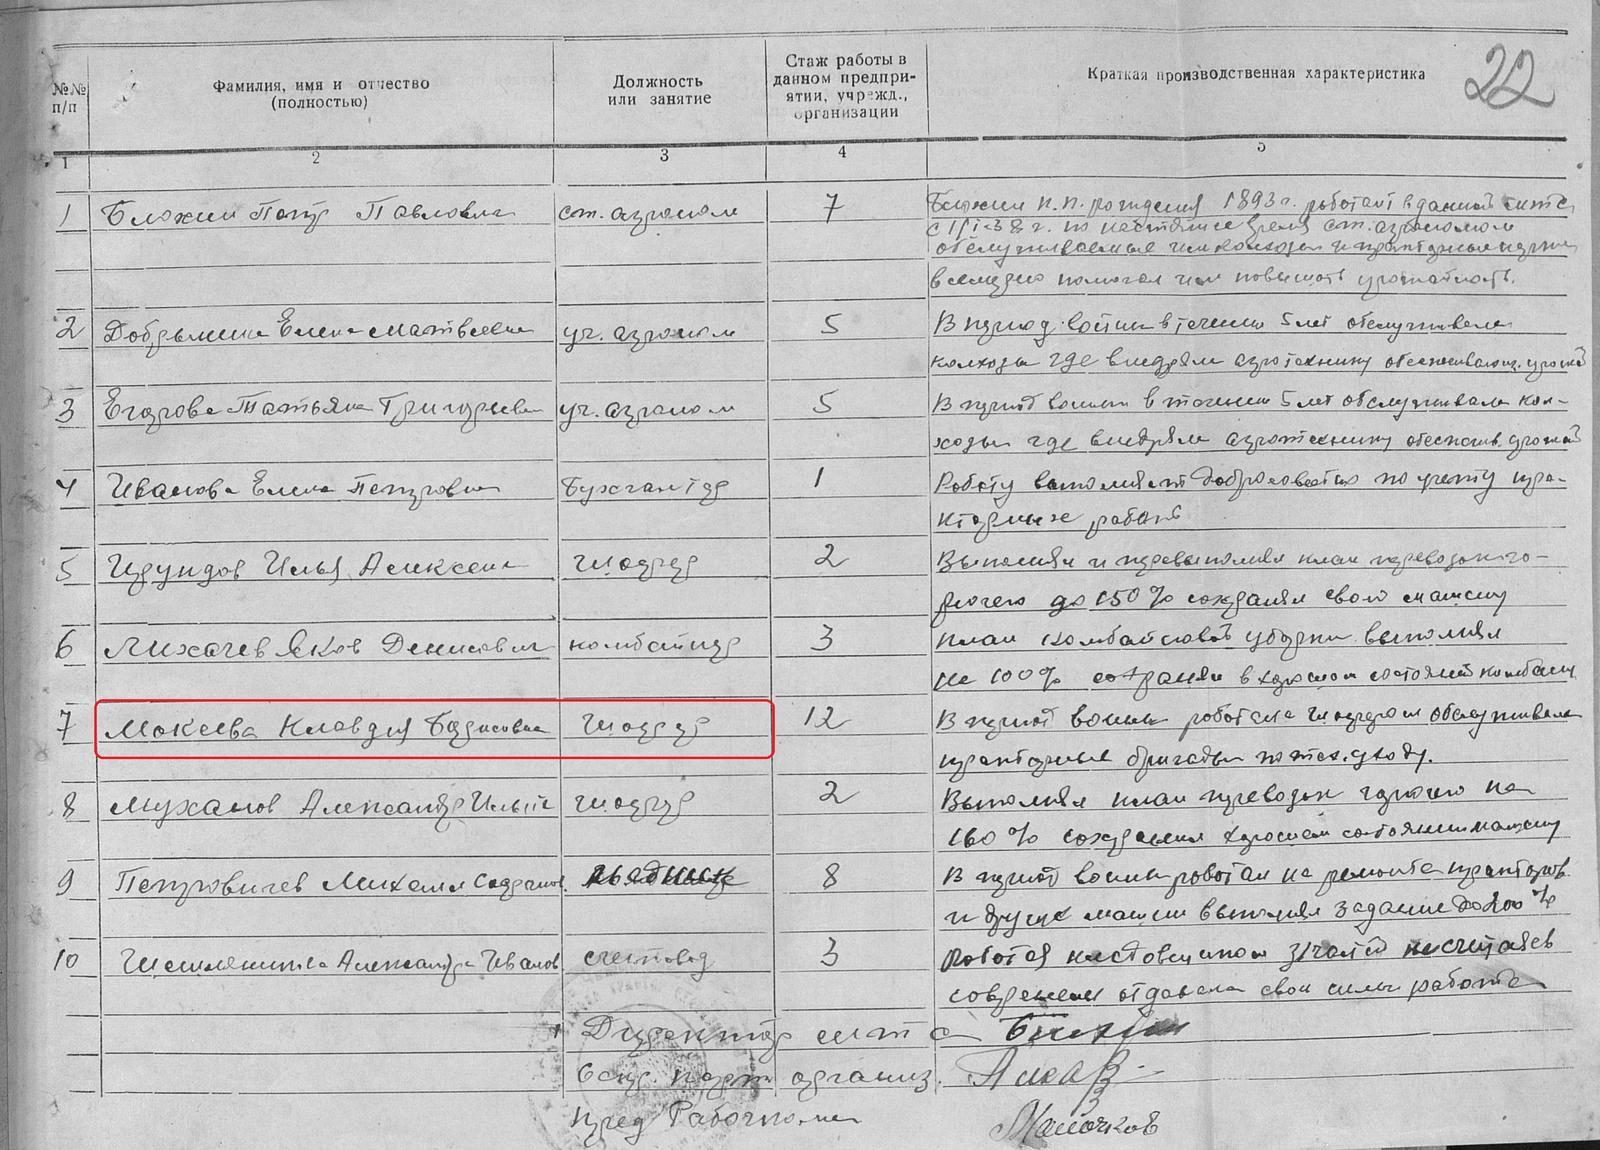 №№ п/п
Фамилия, имя и отчество (полностью)
Должность или занятие
Стаж работы в данном предприятии, учрежд., организации
Краткая производственная характеристика
22
1 2 3 4 5
1 Петр Павлович ст. агроном 7 П. П. рождения 1893 г. работает в данной мтс
ст. агрономом
обслуживаемые колхозы и тракторные
помогал им повышать урожайность.
2 Добрынина Елена Матвеевна уч. агроном 5 В период войны в течении 5 лет обслуживала
колхозы где внедряла агротехнику
3 Егорова Татьяна Григорьевна уч. агроном 5 В период войны в течении 5 лет обслуживала кол-
хозы где внедряла агротехнику обеспечив. урожай
4 Иванова Елена Петровна Бухгалтер 1 Работу выполняет добросовестно по учету тра-
кторных работ
5 Илья Алексеев шофер 2 Выполнял и перевыполнял план перевозок го-
рючего до 150% сохранял свою машину
6 Лихачев Яков Денисович комбайнер 3 план комбайновой уборки выполнял
на 100% сохранял в хорошем состояний комбайн
7 Мокеева Клавдия Борисовна шофер 12 В период войны работала шофером обслуживала
тракторные бригады по тех. уходу.
8 Муханов Александр Ильич шофер 2 Выполнял план перевозок горючего на
160% сохранял хорошем состоянии машину
9 Петровичев Михаил 8 В период войны работал на ремонте тракторов
и других машин выполнял задание до 200%
10 Александра Иванов. счетовод 3 Работая не считаясь
со временем отдавала свои силы работе
Директор мтс
Секр. парт организ.
Пред Рабочкома